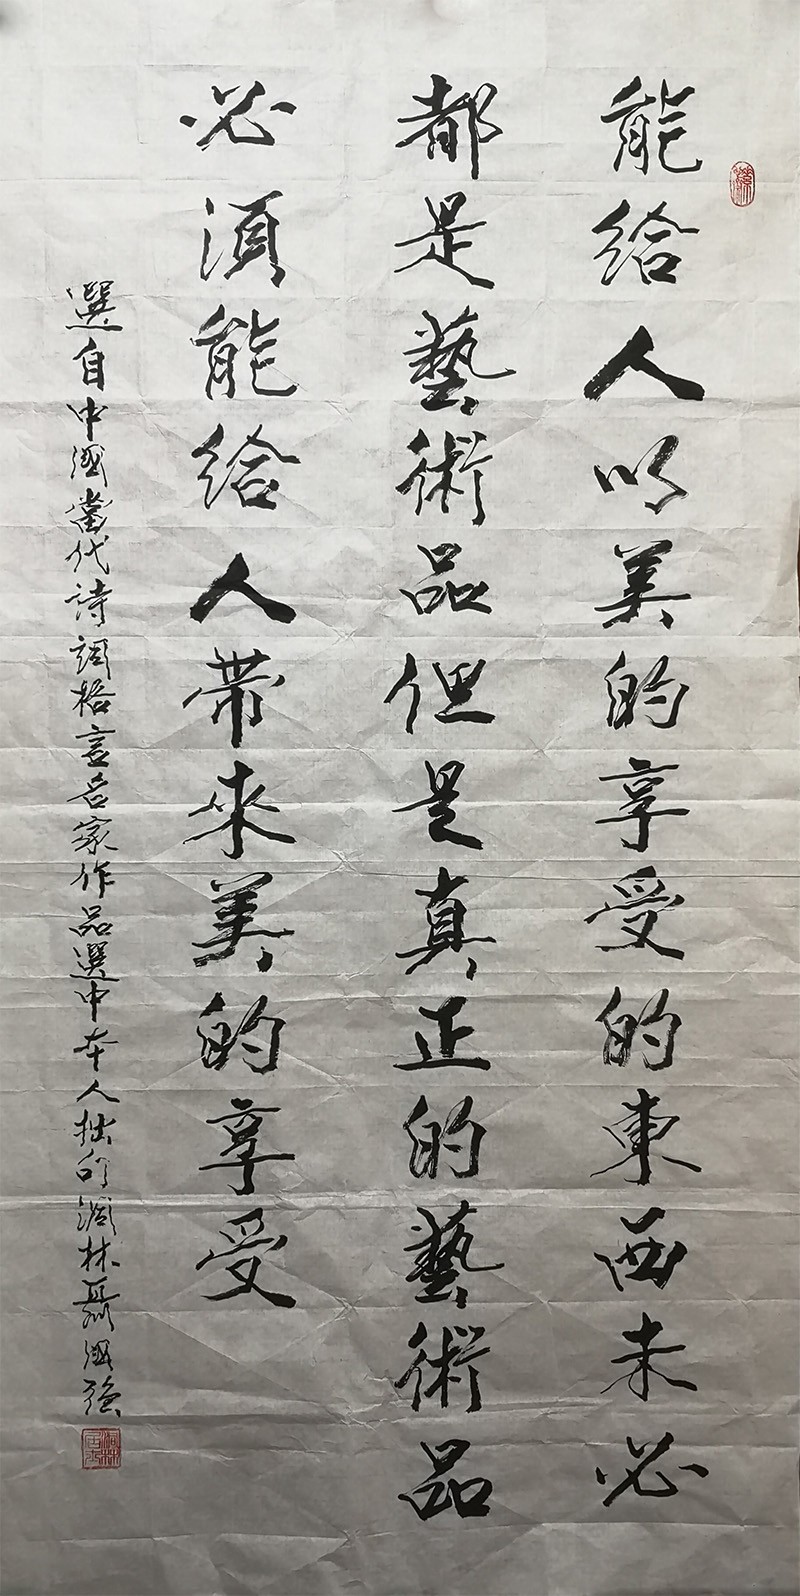 能给人以美的享受的東西未必
都是藝術品但是真正的藝術品
必須能给人帶來美的享受
選自中國當代詩詞格言名家作品選中本人拙句澗林聂國强